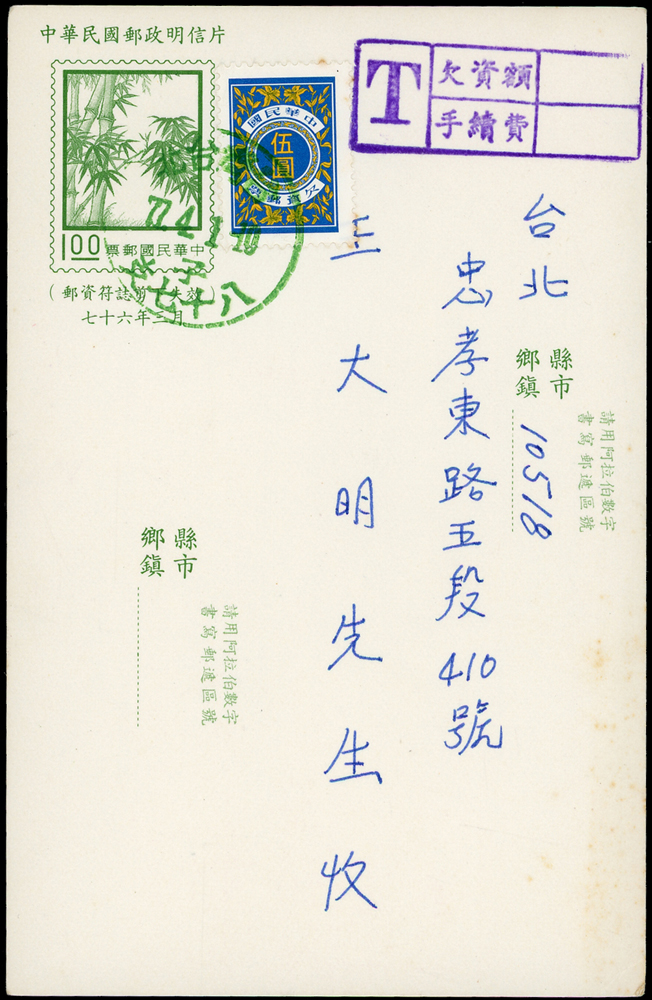 中華民國郵政明信片
中華民國郵票
1.00
（郵資符誌剪下失效）
七十六年三月
中華民國
伍圓
欠資郵票
台北
77.4.1
八十七
T
欠資額
手續費
縣市
鄉鎮
請用阿拉伯數字
書寫郵遞區號
10518
台北
忠孝東路五段410號
王大明先生收
縣市
鄉鎮
請用阿拉伯數字
書寫郵遞區號